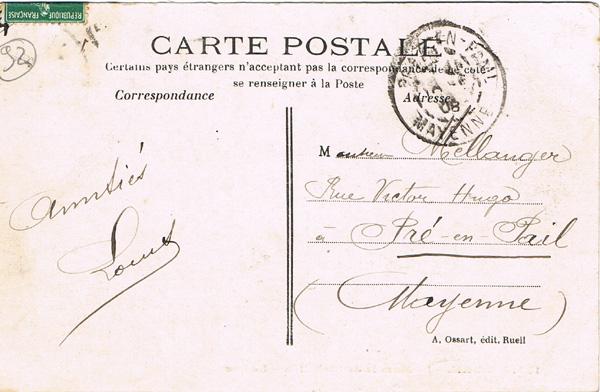 REPUBLIQUE FRANÇAISE
92
CARTE POSTALE
Certains pays étrangers n'acceptent pas la correspondance de ce côté
se renseigner à la Poste
Correspondance
Adresse
EN-PAIL
08
MAYENNE
Amitiés
Louis
Monsieur Mellanger
Rue Victor Hugo
à Pré-en-Pail
(Mayenne)
A. Ossart, édit. Rueil